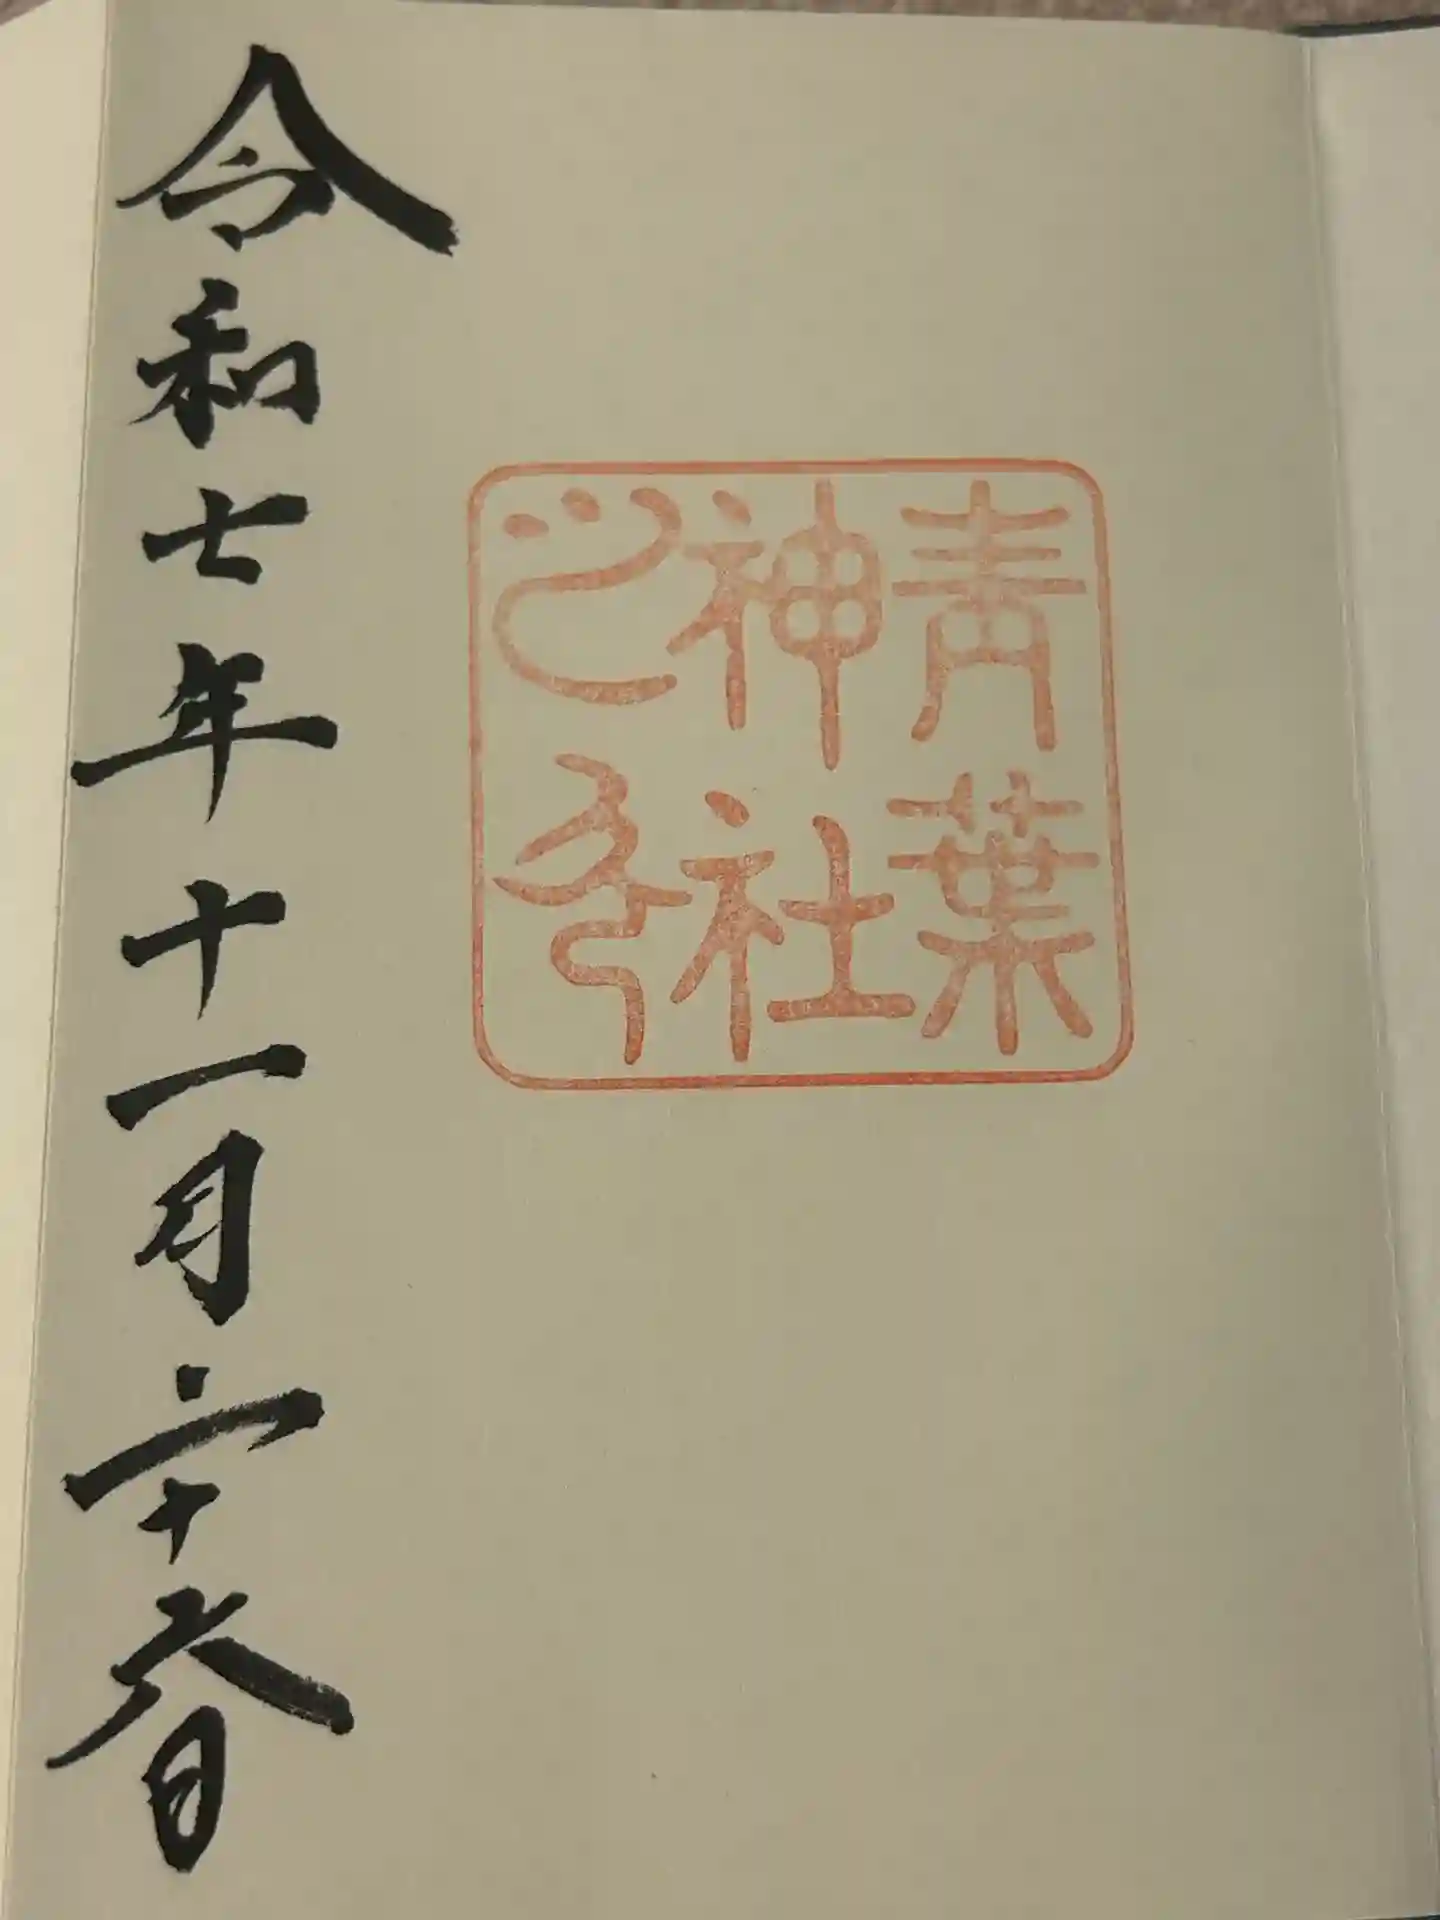 青葉
神社
之印
令和七年十一月二十日